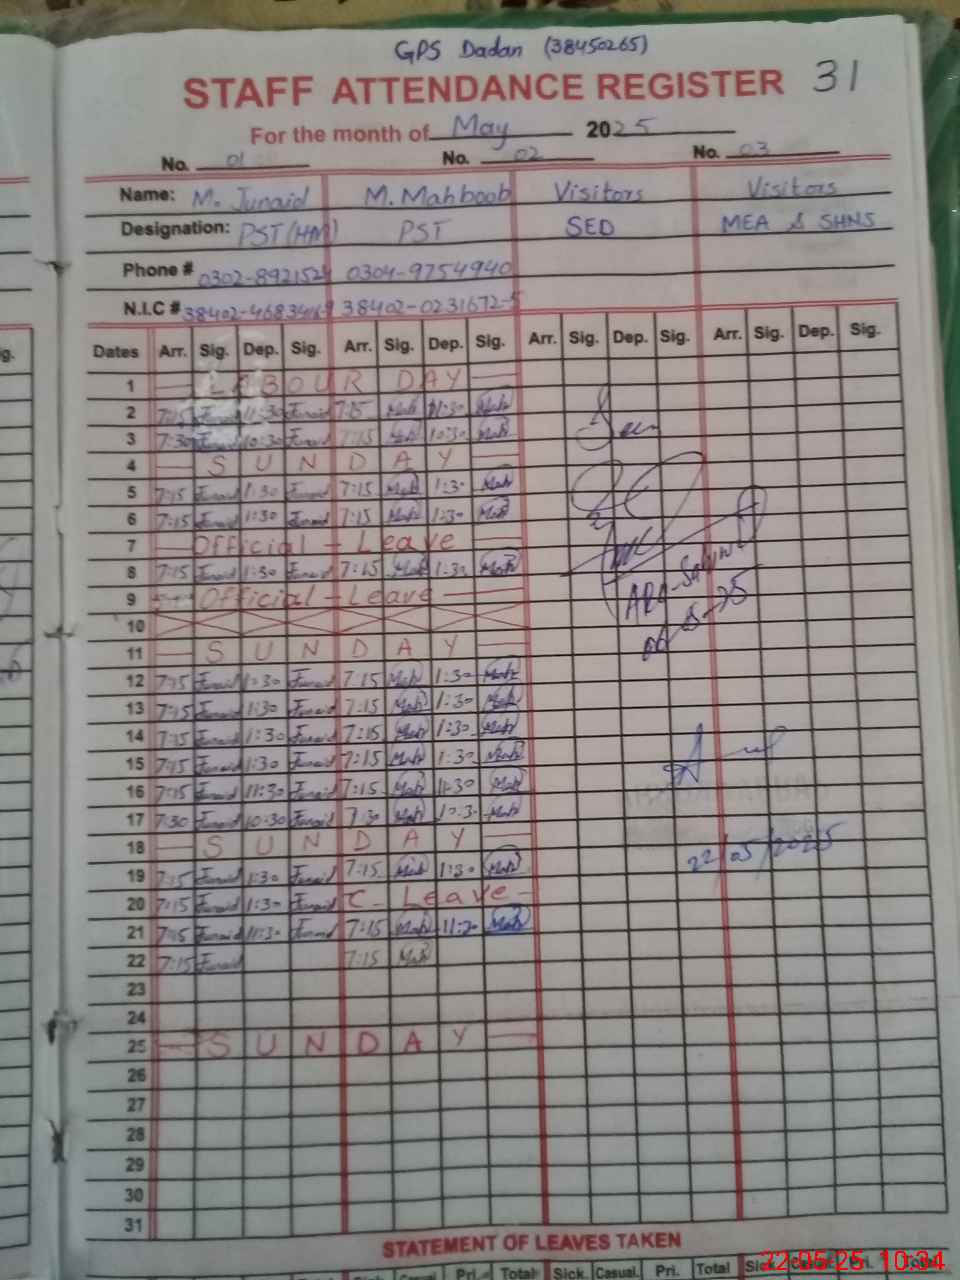 GPS Dadan (38450265)
STAFF ATTENDANCE REGISTER 31
For the month of May 2025
No. 01 No. 02 No. 03
Name: M. Junaid M. Mahboob Visitors Visitors
Designation: PST (HM) PST SED MEA & SHNS
Phone # 0302-8921524 0304-9754940
N.I.C # 38402-4683416-9 38402-0231672-5
Dates Arr. Sig. Dep. Sig. Arr. Sig. Dep. Sig. Arr. Sig. Dep. Sig. Arr. Sig. Dep. Sig.
1 LABOUR DAY
2 7:15 Junaid 11:30 Junaid 7:15 Mah 11:30 Mah
3 7:30 Junaid 10:30 Junaid 7:15 Mah 10:30 Mah
4 SUNDAY
5 7:15 Junaid 1:30 Junaid 7:15 Mah 1:30 Mah
6 7:15 Junaid 1:30 Junaid 7:15 Mah 1:30 Mah
7 Official - Leave
8 7:15 Junaid 1:30 Junaid 7:15 Mah 1:30 Mah
9 Official - Leave
10
11 SUNDAY
12 7:15 Junaid 1:30 Junaid 7:15 Mah 1:30 Mah
13 7:15 Junaid 1:30 Junaid 7:15 Mah 1:30 Mah
14 7:15 Junaid 1:30 Junaid 7:15 Mah 1:30 Mah
15 7:15 Junaid 1:30 Junaid 7:15 Mah 1:30 Mah
16 7:15 Junaid 11:30 Junaid 7:15 Mah 11:30 Mah
17 7:30 Junaid 10:30 Junaid 7:30 Mah 10:30 Mah
18 SUNDAY
19 7:15 Junaid 1:30 Junaid 7:15 Mah 1:30 Mah
22/05/2025
20 7:15 Junaid 1:30 Junaid C. Leave
21 7:15 Junaid 11:30 Junaid 7:15 Mah 11:30 Mah
22 7:15 Junaid 7:15 Mah
23
24
25 SUNDAY
26
27
28
29
30
31
STATEMENT OF LEAVES TAKEN
Sick Casual Pri. Total Sick Casual. Pri. Total Sick Casual Pri. Total
22-05-25 10:34